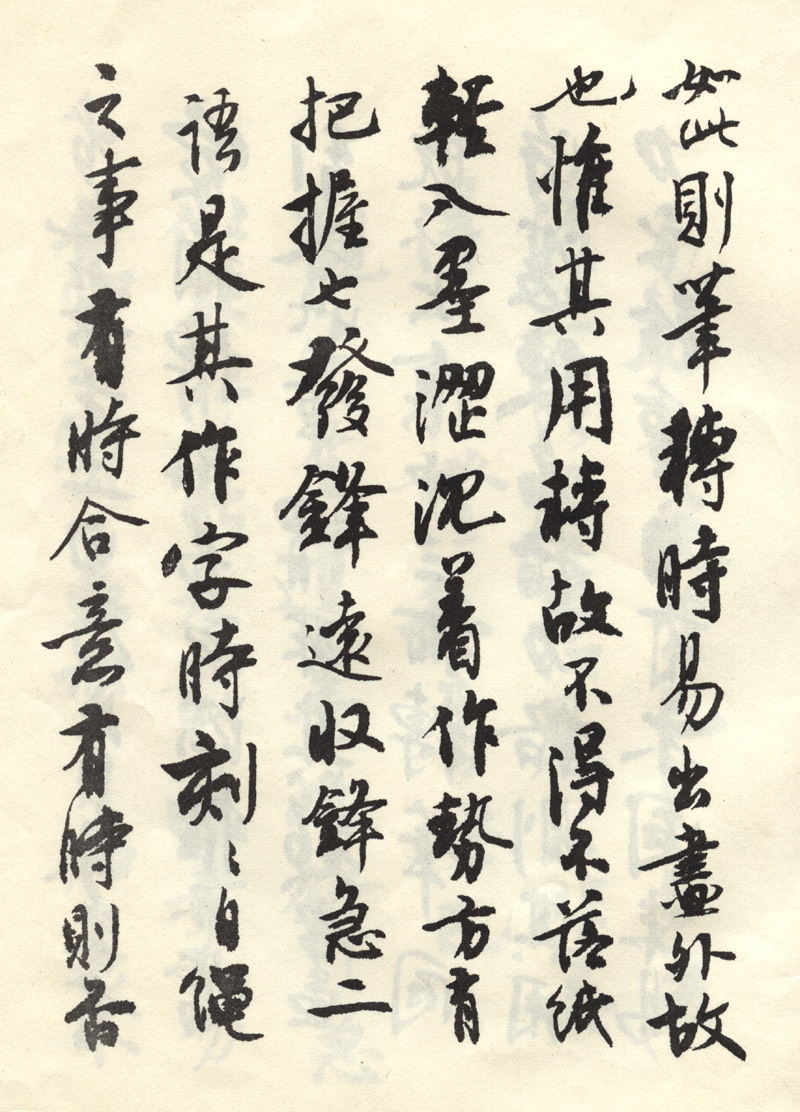 如此則筆轉時易出畫外故
也惟其用轉故不得不落紙
輕入墨澀沉着作勢方有
把握也發鋒遠收鋒急二
語是其作字時刻〻自繩
之事有時合意有時則否